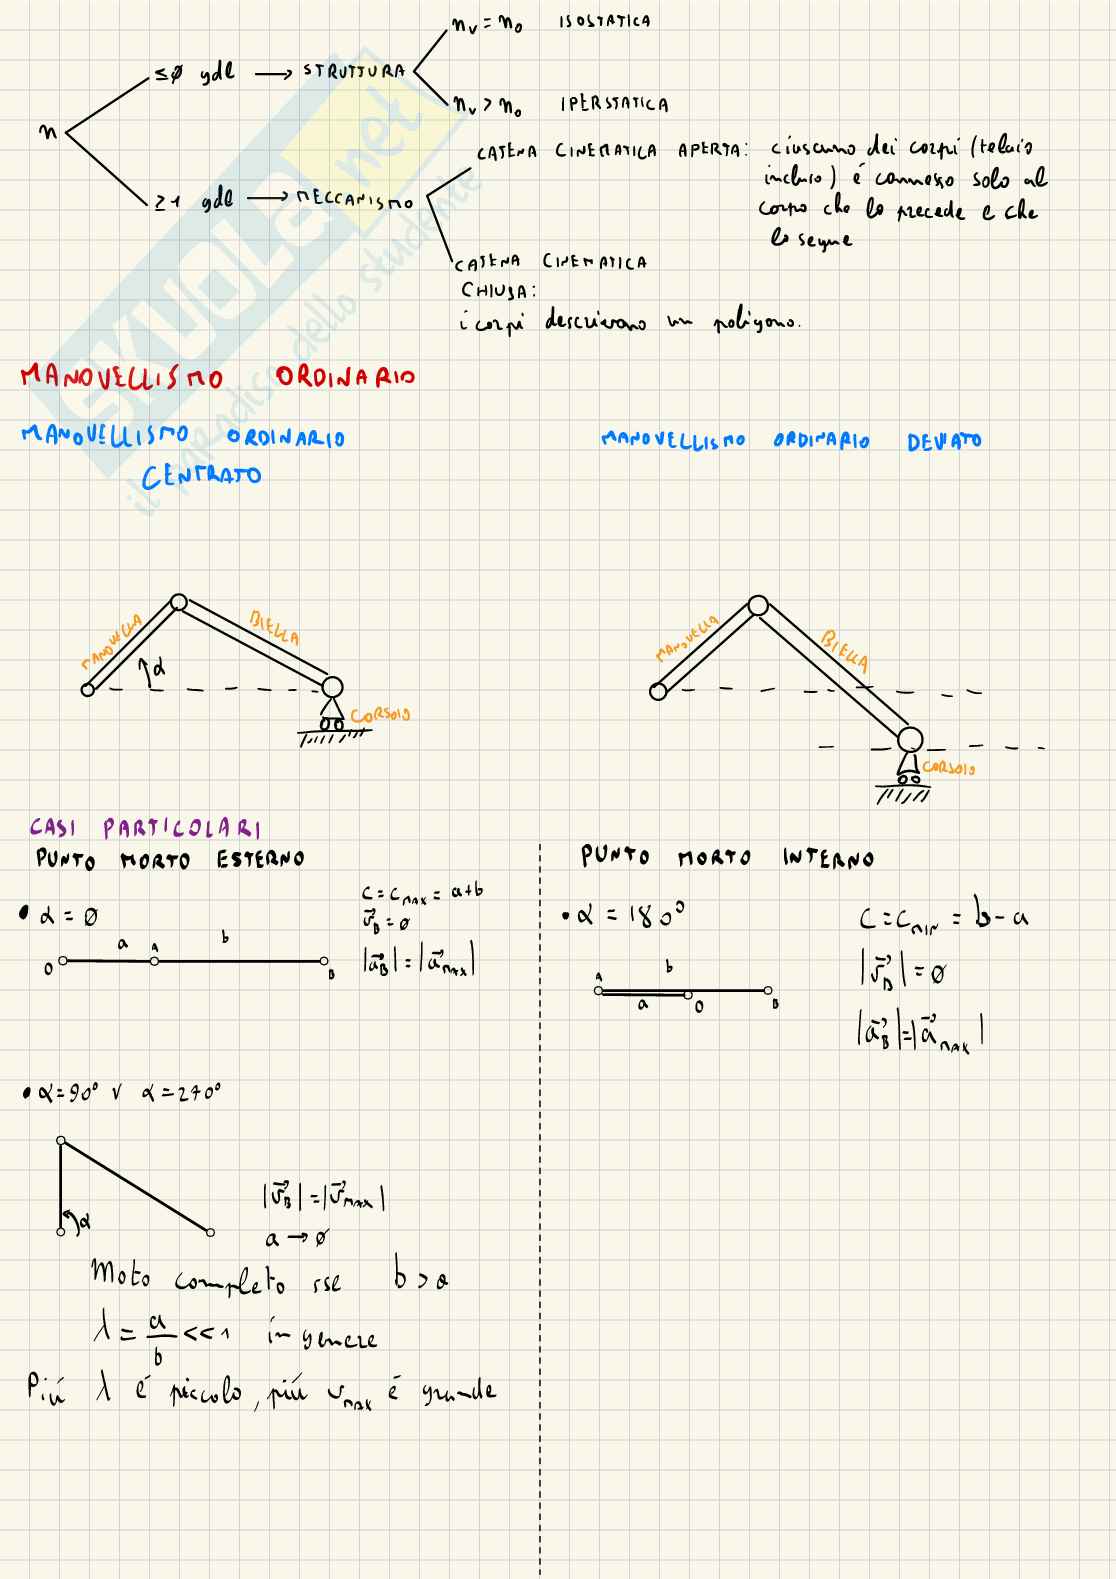 n_v = n_0 ISOSTATICA
≤ø gdl → STRUTTURA
n
n_v > n_0 IPERSTATICA
≥1 gdl → MECCANISMO
CATENA CINEMATICA APERTA: ciascuno dei corpi (telaio
incluso) é connesso solo al
corpo che lo precede e che
lo segue
CATENA CINEMATICA
CHIUSA:
i corpi descrivono un poligono.
SKUOLA.net
il paradiso dello studente
MANOVELLISMO ORDINARIO
MANOVELLISMO ORDINARIO
CENTRATO
MANOVELLISMO ORDINARIO DEVIATO
MANOVELLA
BIELLA
α
CORSOIO
MANOVELLA
BIELLA
CORSOIO
CASI PARTICOLARI
PUNTO MORTO ESTERNO
• α = ø
O a A b B
c = c_MAX = a+b
v⃗_B = ø
|a⃗_B| = |a⃗_MAX|
PUNTO MORTO INTERNO
• α = 180°
A b
a O B
c = c_MIN = b - a
|v⃗_B| = ø
|a⃗_B| = |a⃗_MAX|
• α = 90° ∨ α = 270°
α
|v⃗_B| = |v⃗_MAX|
a → ø
Moto completo sse b > a
λ = a/b << 1 in genere
Piú λ é piccolo, piú v_MAX é grande